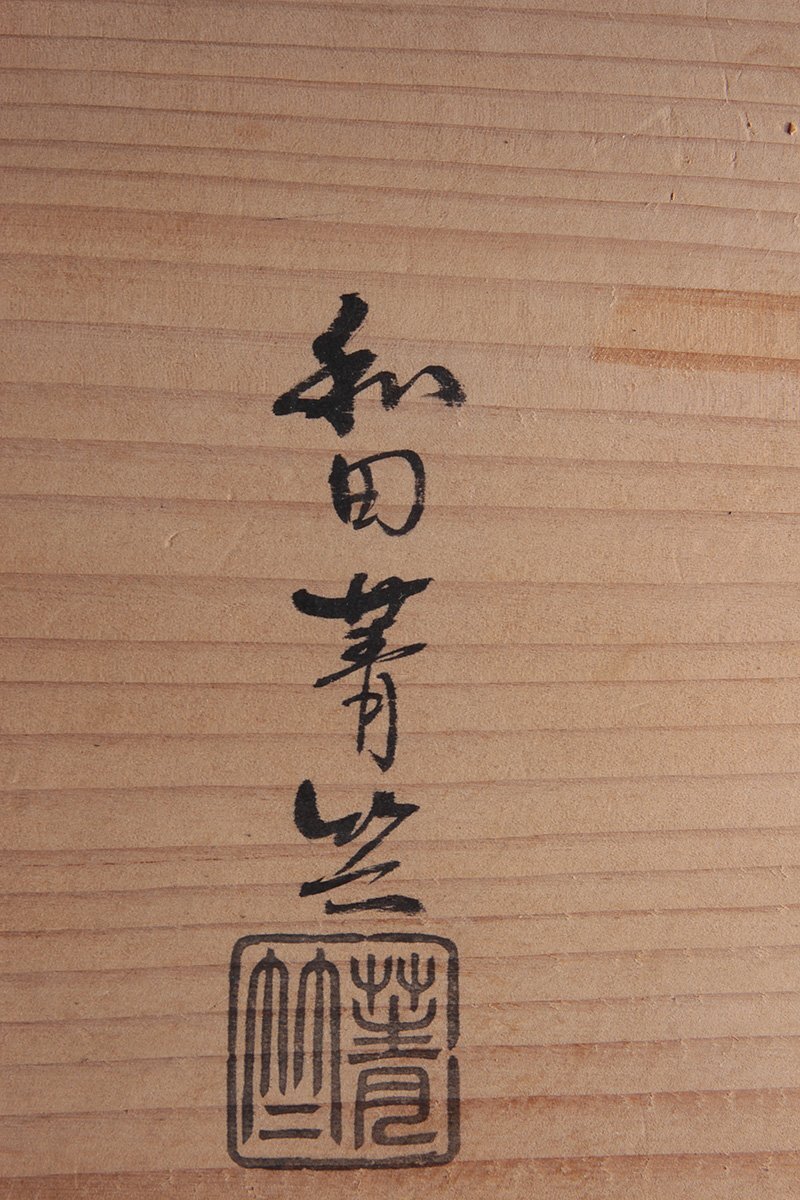 和田菁竺
菁竺